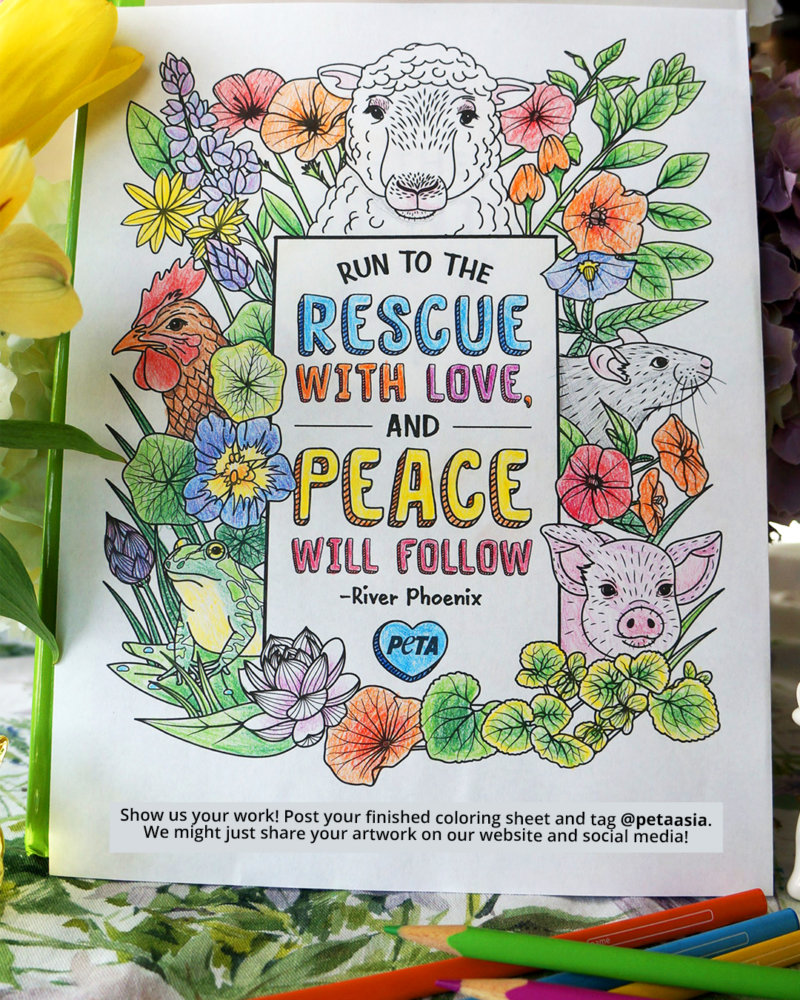 RUN TO THE
RESCUE
WITH LOVE,
AND
PEACE
WILL FOLLOW
-River Phoenix
PETA
Show us your work! Post your finished coloring sheet and tag @petaasia.
We might just share your artwork on our website and social media!
name